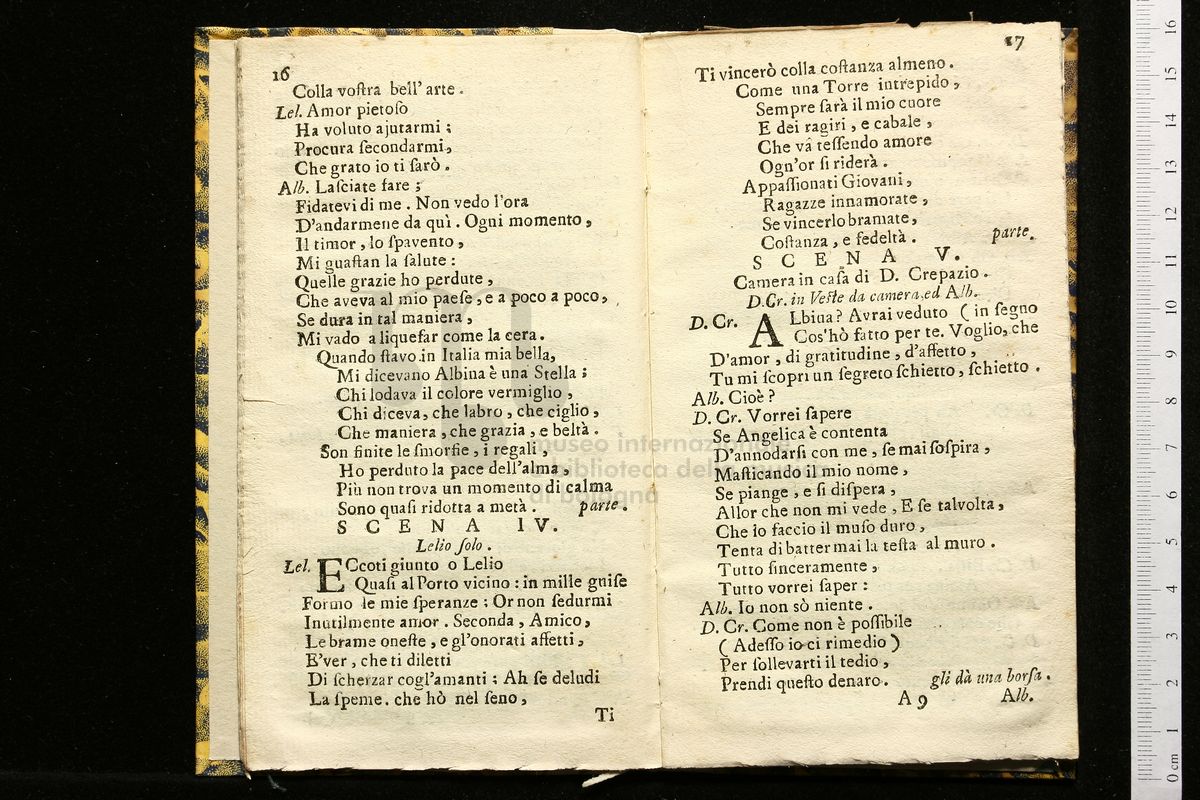 16
Colla voſtra bell' arte.
Lel. Amor pietoſo
Ha voluto ajutarmi;
Procura ſecondarmi,
Che grato io ti ſarò.
Alb. Laſciate fare;
Fidatevi di me. Non vedo l'ora
D'andarmene da quì. Ogni momento,
Il timor, lo ſpavento,
Mi guaſtan la ſalute:
Quelle grazie ho perdute,
Che aveva al mio paeſe, e a poco a poco,
Se dura in tal maniera,
Mi vado a liquefar come la cera.
Quando ſtavo in Italia mia bella,
Mi dicevano Albina è una Stella;
Chi lodava il colore vermiglio,
Chi diceva, che labro, che ciglio,
Che maniera, che grazia, e beltà.
Son finite le ſmorfie, i regali,
Ho perduto la pace dell'alma,
Più non trova un momento di calma
Sono quaſi ridotta a metà. parte.
SCENA IV.
Lelio ſolo.
Lel. ECcoti giunto o Lelio
Quaſi al Porto vicino: in mille guiſe
Formo le mie ſperanze; Or non ſedurmi
Inutilmente amor. Seconda, Amico,
Le brame oneſte, e gl'onorati affetti,
E'ver, che ti diletti
Di ſcherzar cogl'amanti; Ah ſe deludi
La ſpeme. che hò nel ſeno,
Ti
17
Ti vincerò colla coſtanza almeno.
Come una Torre intrepido,
Sempre ſarà il mio cuore
E dei ragiri, e cabale,
Che và teſſendo amore
Ogn'or ſi riderà.
Appaſſionati Giovani,
Ragazze innamorate,
Se vincerlo bramate,
Coſtanza, e fedeltà. parte.
SCENA V.
Camera in caſa di D. Crepazio.
D.Cr. in Veſte da camera, ed Alb.
D. Cr. ALbina? Avrai veduto (in ſegno
Cos'hò fatto per te. Voglio, che
D'amor, di gratitudine, d'affetto,
Tu mi ſcopri un ſegreto ſchietto, ſchietto.
Alb. Cioè?
D. Cr. Vorrei ſapere
Se Angelica è contenta
D'annodarſi con me, ſe mai ſoſpira,
Maſticando il mio nome,
Se piange, e ſi diſpera,
Allor che non mi vede, E ſe talvolta,
Che io faccio il muſo duro,
Tenta di batter mai la teſta al muro.
Tutto ſinceramente,
Tutto vorrei ſaper:
Alb. Io non sò niente.
D. Cr. Come non è poſſibile
(Adeſſo io ci rimedio)
Per ſollevarti il tedio,
Prendi queſto denaro. gli dà una borſa.
A 9 Alb.
museo internazionale
biblioteca della musica
di bologna
0 cm 1 2 3 4 5 6 7 8 9 10 11 12 13 14 15 16